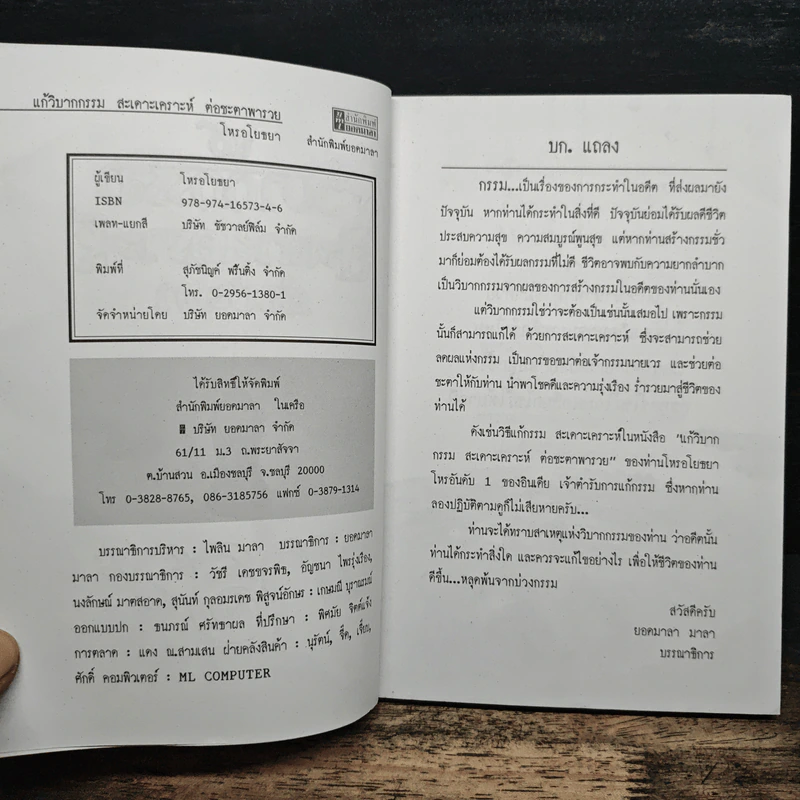 แก้วิบากกรรม สะเดาะเคราะห์ ต่อชะตาพารวย
โหรอโยธยา
สำนักพิมพ์
ยอดมาลา
สำนักพิมพ์ยอดมาลา
ผู้เขียน โหรอโยธยา
ISBN 978-974-16573-4-6
เพลท-แยกสี บริษัท ชัชวาลย์ฟิล์ม จำกัด
พิมพ์ที่ สุภัชนิญค์ พริ้นติ้ง จำกัด
โทร. 0-2956-1380-1
จัดจำหน่ายโดย บริษัท ยอดมาลา จำกัด
ได้รับสิทธิ์ให้จัดพิมพ์
สำนักพิมพ์ยอดมาลา ในเครือ
บริษัท ยอดมาลา จำกัด
61/11 ม.3 ถ.พระยาสัจจา
ต.บ้านสวน อ.เมืองชลบุรี จ.ชลบุรี 20000
โทร 0-3828-8765, 086-3185756 แฟกซ์ 0-3879-1314
บรรณาธิการบริหาร : ไพลิน มาลา บรรณาธิการ : ยอดมาลา
มาลา กองบรรณาธิการ : วัชรี เดชขจรพิช, อัญชนา ไพรรุ่งเรือง,
นงลักษณ์ มาตสอาด, สุนันท์ กุลอมรเดช พิสูจน์อักษร : เกษมณี บุราณรมณ์
ออกแบบปก : ชนภรณ์ ศรัทธาผล ที่ปรึกษา : พิศมัย จิตต์แจ้ง
การตลาด : แดง ณ.สามเสน ฝ่ายคลังสินค้า : นุรัตน์, จี๊ด, เจี๊ยบ,
ศักดิ์ คอมพิวเตอร์ : ML COMPUTER
บก. แถลง
กรรม...เป็นเรื่องของการกระทำในอดีต ที่ส่งผลมายัง
ปัจจุบัน หากท่านได้กระทำในสิ่งที่ดี ปัจจุบันย่อมได้รับผลดีชีวิต
ประสบความสุข ความสมบูรณ์พูนสุข แต่หากท่านสร้างกรรมชั่ว
มาก็ย่อมต้องได้รับผลกรรมที่ไม่ดี ชีวิตอาจพบกับความยากลำบาก
เป็นวิบากกรรมจากผลของการสร้างกรรมในอดีตของท่านนั่นเอง
แต่วิบากกรรมใช่ว่าจะต้องเป็นเช่นนั้นเสมอไป เพราะกรรม
นั้นก็สามารถแก้ได้ ด้วยการสะเดาะเคราะห์ ซึ่งจะสามารถช่วย
ลดผลแห่งกรรม เป็นการขอขมาต่อเจ้ากรรมนายเวร และช่วยต่อ
ชะตาให้กับท่าน นำพาโชคดีและความรุ่งเรือง ร่ำรวยมาสู่ชีวิตของ
ท่านได้
ดังเช่นวิธีแก้กรรม สะเดาะเคราะห์ในหนังสือ "แก้วิบาก
กรรม สะเดาะเคราะห์ ต่อชะตาพารวย" ของท่านโหรอโยธยา
โหรอันดับ 1 ของอินเดีย เจ้าตำรับการแก้กรรม ซึ่งหากท่าน
ลองปฏิบัติตามดูก็ไม่เสียหายครับ...
ท่านจะได้ทราบสาเหตุแห่งวิบากกรรมของท่าน ว่าอดีตนั้น
ท่านได้กระทำสิ่งใด และควรจะแก้ไขอย่างไร เพื่อให้ชีวิตของท่าน
ดีขึ้น...หลุดพ้นจากบ่วงกรรม
สวัสดีครับ
ยอดมาลา มาลา
บรรณาธิการ